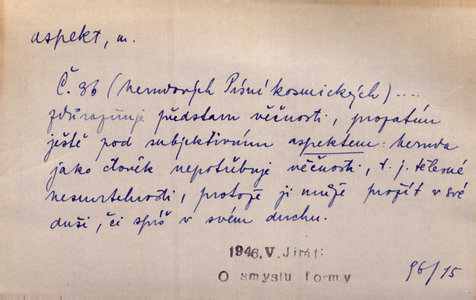 aspekt, m.
Č. 36 (Nerudových Písní kosmických) ....
zdůrazňuje představu věčnosti,
ještě pod subjektivním aspektem: Neruda
jako člověk nepotřebuje věčnosti, t. j. tělesné
nesmrtelnosti, protože ji může prožít v své
duši, či spíš v svém duchu.
1946. V. Jirát:
O smyslu formy
96/15